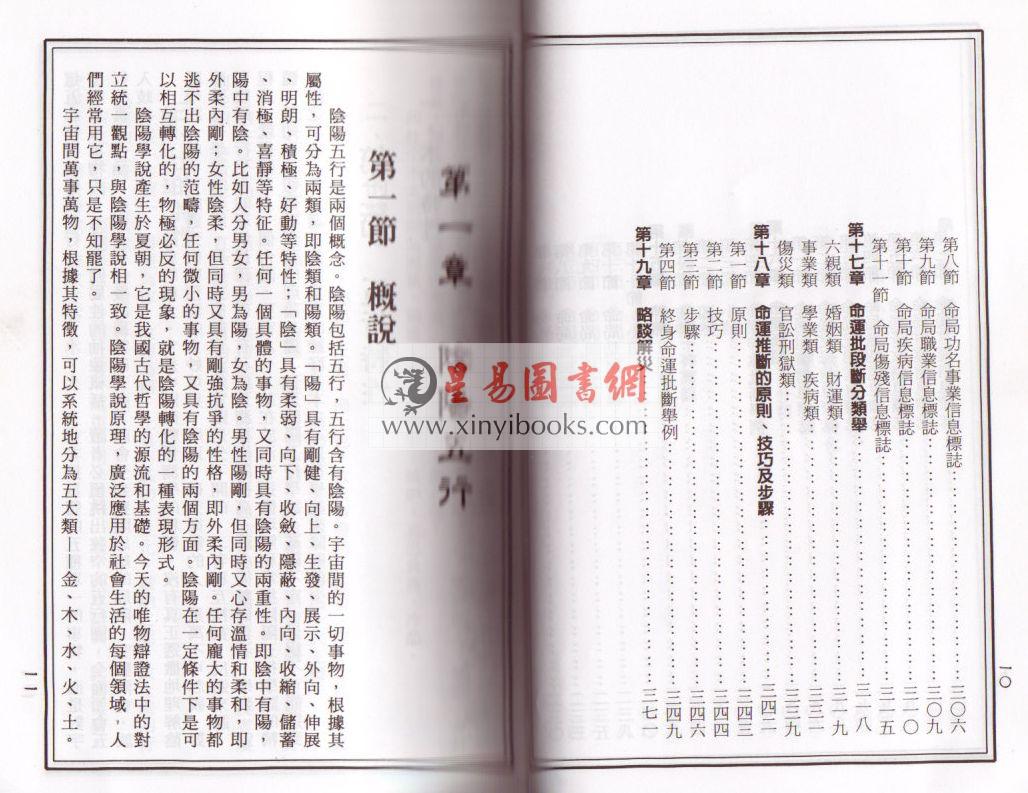 第八節　命局功名事業信息標誌……三〇六
第九節　命局職業信息標誌……三〇九
第十節　命局疾病信息標誌……三一〇
第十一節　命局傷殘信息標誌……三一五
第十七章　命運批段斷分類舉……三一八
六親類　婚姻類　財運類……三一九
事業類　學業類　疾病類……三三一
傷災類　官訟刑獄類……三三九
第十八章　命運推斷的原則、技巧及步驟……三四二
第一節　原則……三四三
第二節　技巧……三四四
第三節　步驟……三四六
第四節　終身命運批斷舉例……三四九
第十九章　略談解災……三七一
一〇
第一章　陰陽五行
第一節　概說
陰陽五行是兩個概念。陰陽包括五行，五行含有陰陽。宇宙間的一切事物，根據其
屬性，可分為兩類，即陰類和陽類。「陽」具有剛健、向上、生發、展示、外向、伸展
、明朗、積極、好動等特性；「陰」具有柔弱、向下、收斂、隱蔽、內向、收縮、儲蓄
、消極、喜靜等特征。任何一個具體的事物，又同時具有陰陽的兩重性。即陰中有陽，
陽中有陰。比如人分男女，男為陽，女為陰。男性陽剛，但同時又心存溫情和柔和，即
外柔內剛；女性陰柔，但同時又具有剛強抗爭的性格，即外柔內剛。任何龐大的事物都
逃不出陰陽的范疇，任何微小的事物，又具有陰陽的兩個方面。陰陽在一定條件下是可
以相互轉化的，物極必反的現象，就是陰陽轉化的一種表現形式。
陰陽學說產生於夏朝，它是我國古代哲學的源流和基礎。今天的唯物辯證法中的對
立統一觀點，與陰陽學說相一致。陰陽學說原理，廣泛應用於社會生活的每個領域，人
們經常用它，只是不知罷了。
宇宙間萬事萬物，根據其特徵，可以系統地分為五大類——金、木、水、火、土。
一一
星易圖書網
www.xinyibooks.com